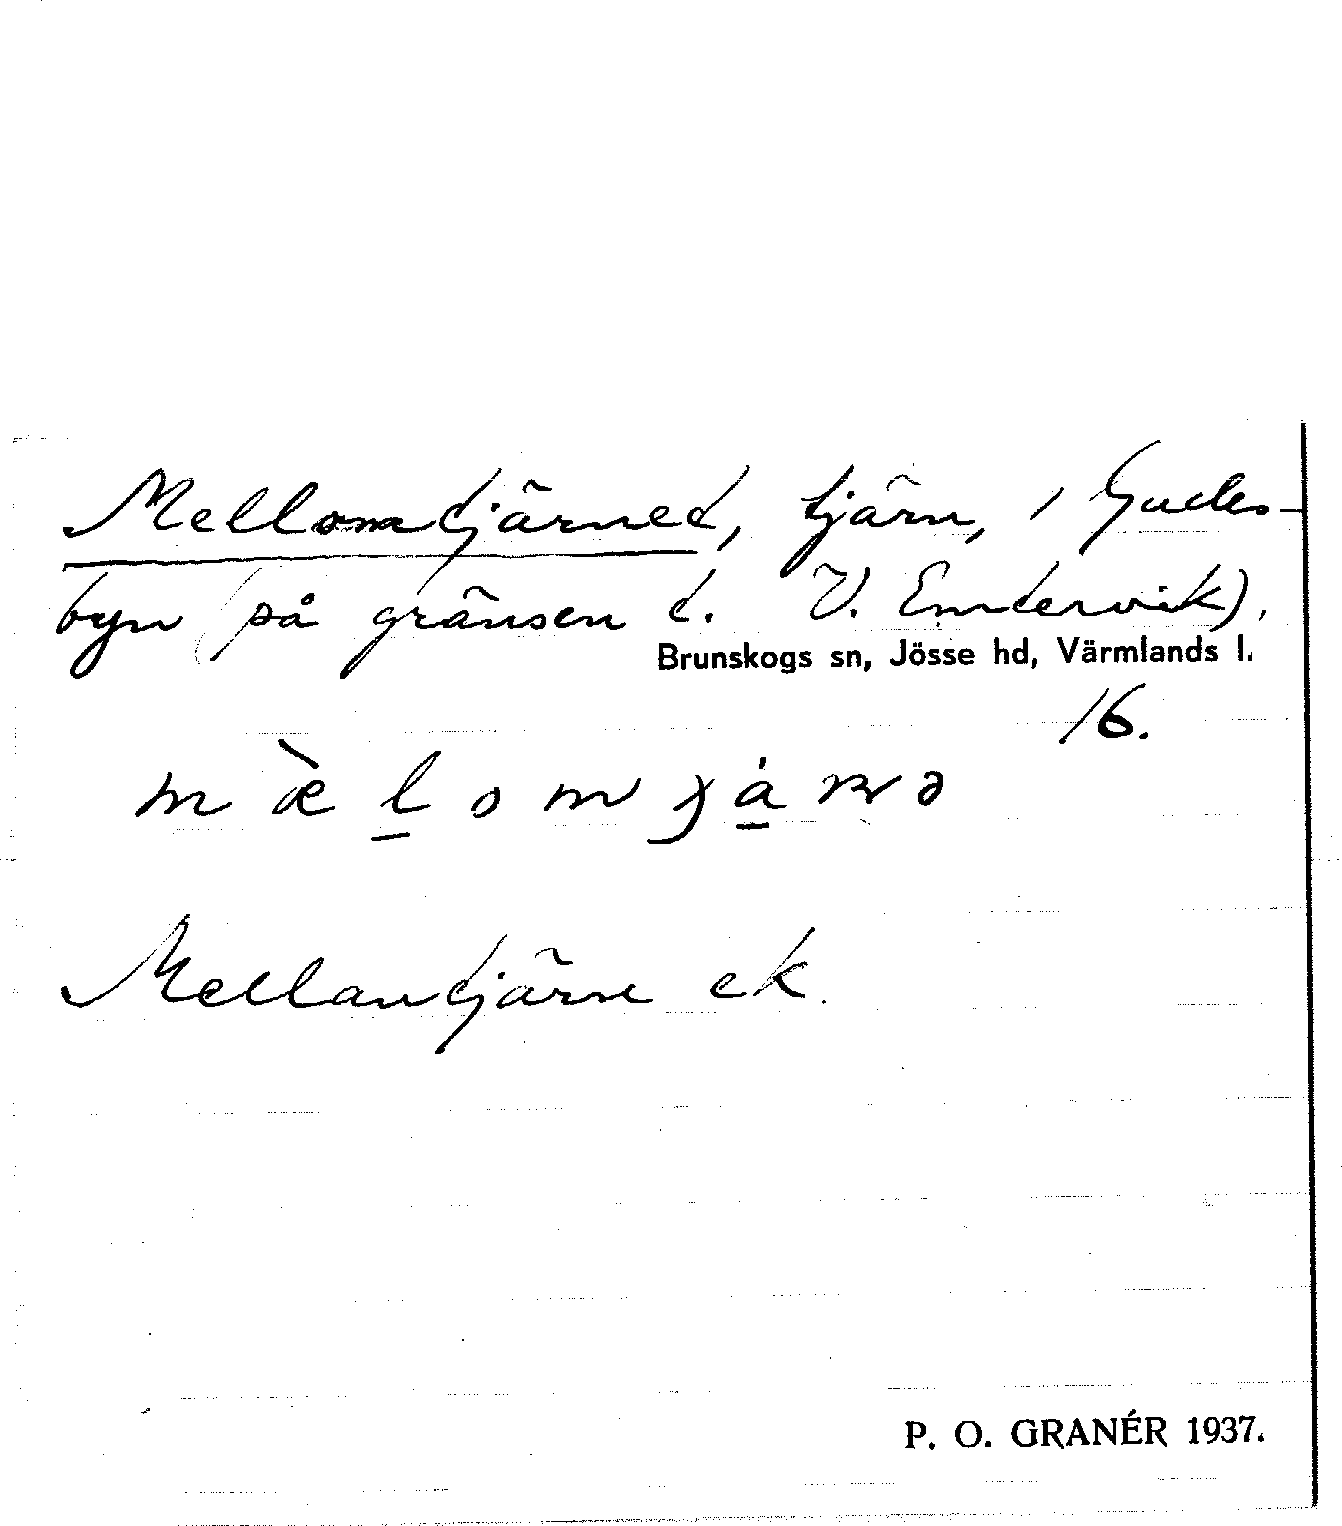 Mellomtjärnet, tjärn, i Gudes-
byn (på gränsen t. V. Emtervik),
Brunskogs sn, Jösse hd, Värmlands l.
16.
Mellantjärn ek.
P. O. GRANÉR 1937.